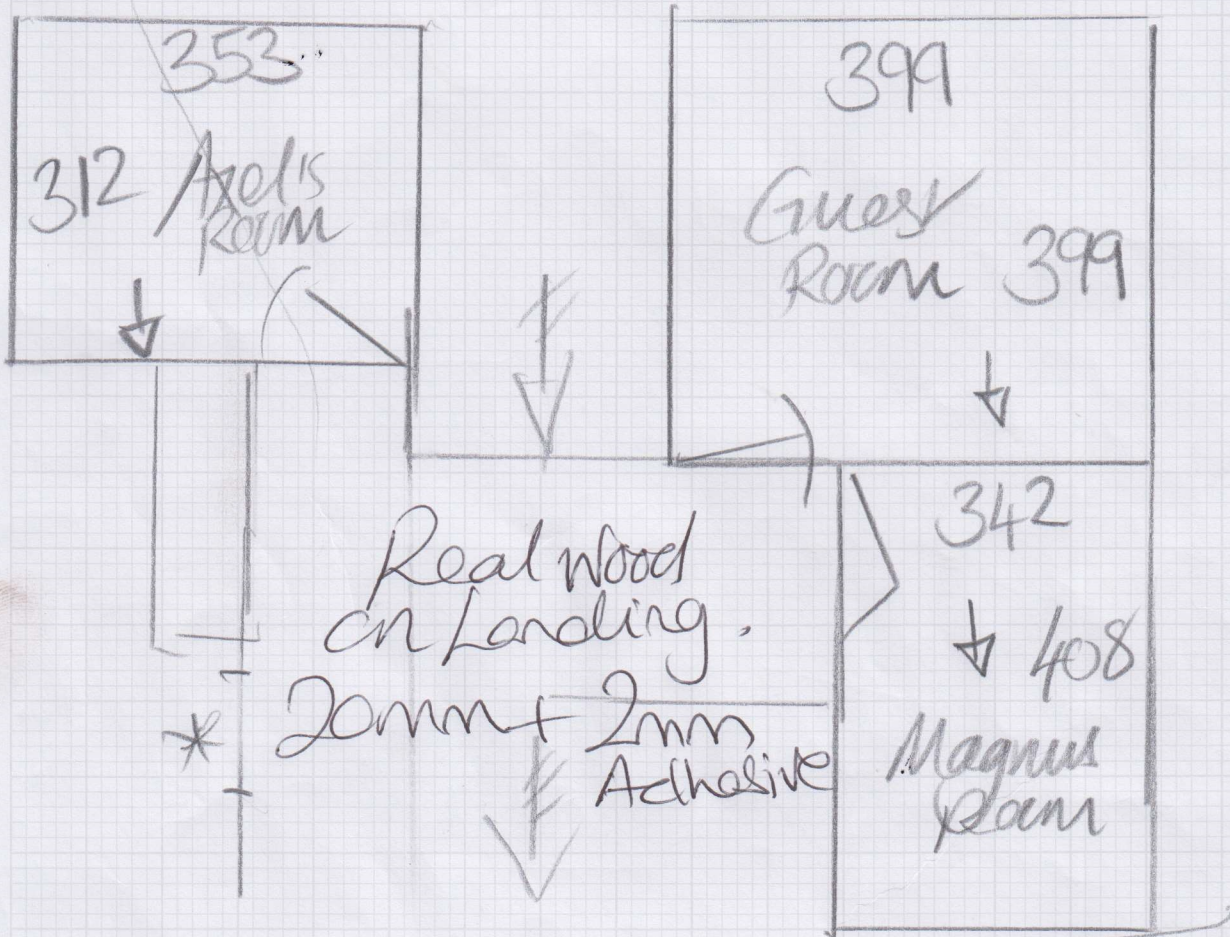 353
312 Axel's
Room
399
Guest
Room 399
342
408
Magnus
Room
Real Wood
on Landing.
20mm + 2mm
Adhesive
*